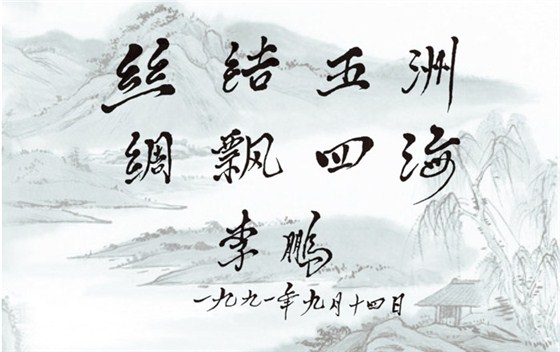 丝结五洲
绸飘四海
李鹏
一九九一年九月十四日